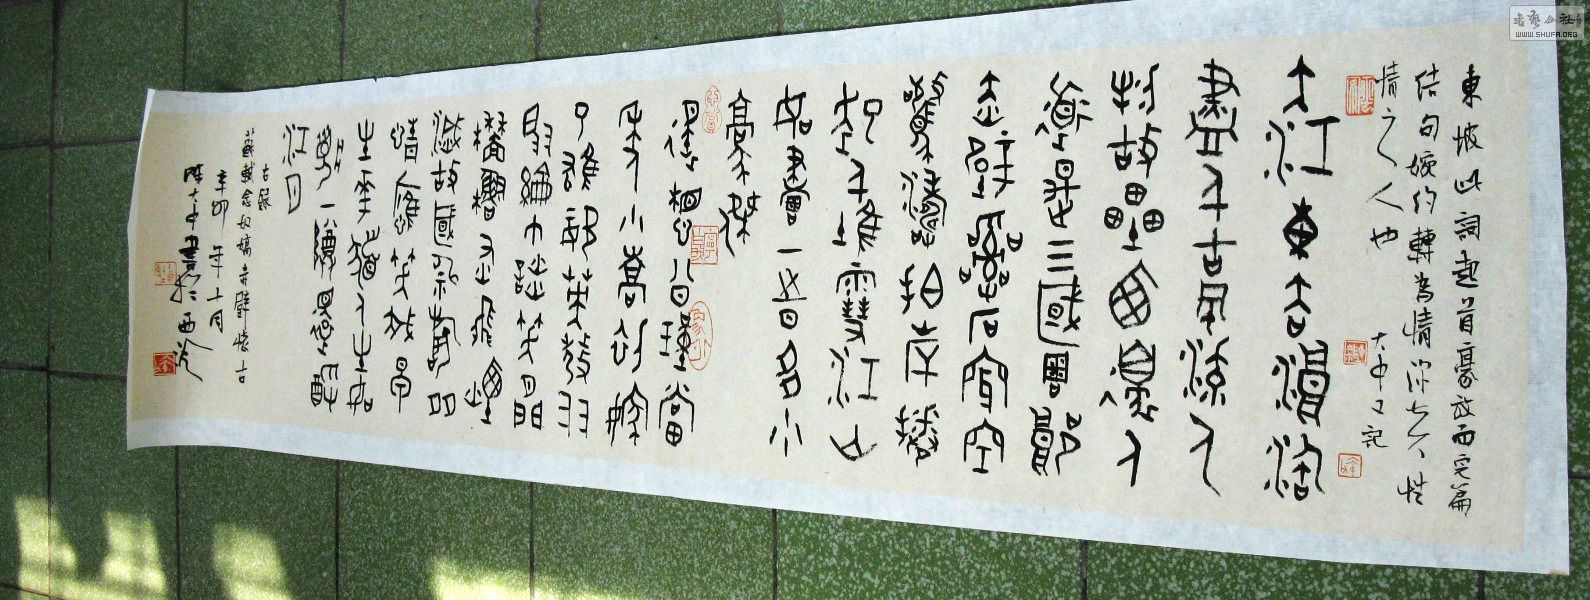 東坡此詞起首豪放而完篇
結句婉約轉為情深
情之人也
大中又記
大江東去浪淘
盡千古風流人
物故壘西邊人
道是三國周郎
赤壁亂石穿空
驚濤拍岸捲
起千堆雪江山
如畫一時多少
豪傑
遙想公瑾當
年小喬初嫁
了雄姿英發羽
扇綸巾談笑間
檣櫓灰飛煙
滅故國神遊多
情應笑我早
生華髮人生如
夢一尊還酹
江月
蘇軾念奴嬌赤壁懷古
辛卯年十月
大中書於西泠
书艺公社
WWW.SHUFA.ORG